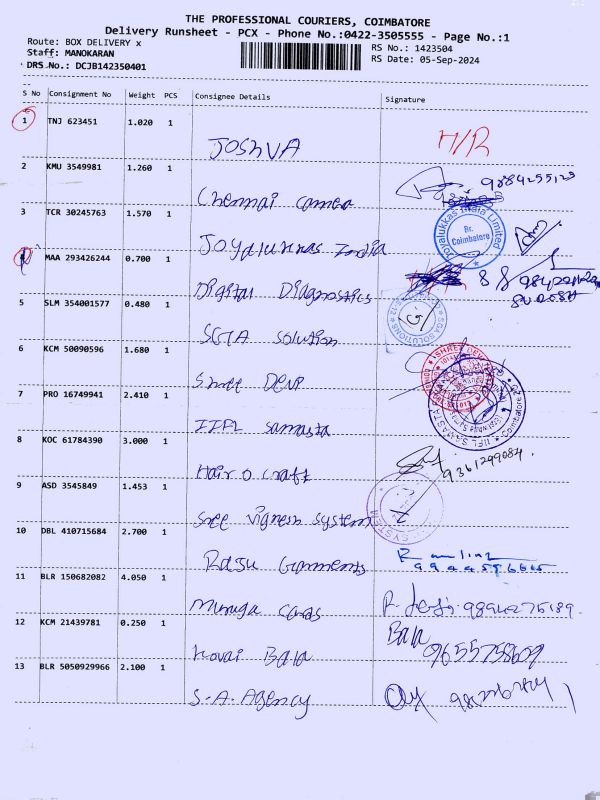 THE PROFESSIONAL COURIERS, COIMBATORE
Delivery Runsheet - PCX - Phone No.:0422-3505555 - Page No.:1
Route: BOX DELIVERY x
RS No.: 1423504
Staff: MANOKARAN
RS Date: 05-Sep-2024
DRS No.: DCJB142350401
S No Consignment No Weight PCS Consignee Details Signature
1 TNJ 623451 1.020 1
JOSHVA H/R
2 KMU 3549981 1.260 1
Chennai camera
3 TCR 30245763 1.570 1
Joyalukkas India Limited
Br.
Coimbatore
Joyalukkas India
4 MAA 293426244 0.700 1
Digital Diagnostics
5 SLM 354001577 0.480 1
SGIA solution
6 KCM 50090596 1.680 1
Shree DEVI
7 PRO 16749941 2.410 1
IIFL samasta
8 KOC 61784390 3.000 1
Hair o craft 9361299084
9 ASD 3545849 1.453 1
Sree vignesh system
10 DBL 410715684 2.700 1
Raju Garments
11 BLR 150682082 4.050 1
Muruga cards
12 KCM 21439781 0.250 1
Bala
Kovai Bala 9655758609
13 BLR 5050929966 2.100 1
S.A. Agency